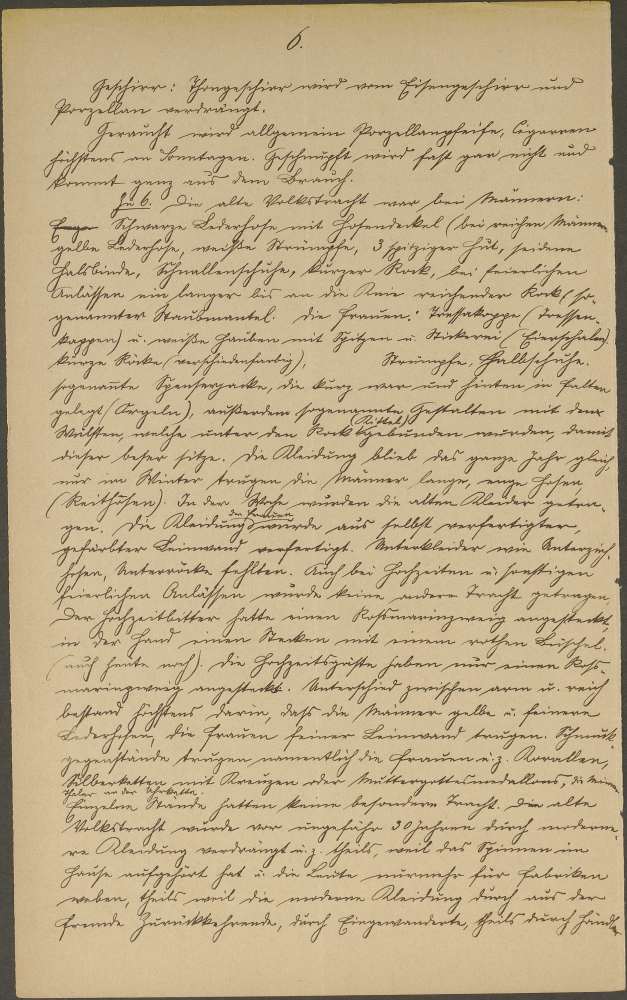 6.
Geschirr: Thongeschirr wird vom Eisengeschirr und
Porzellan verdrängt.
Geraucht wird allgemein Porzellanpfeife, Cigarren
höchstens an Sonntagen. Geschnupft wird fast gar nicht und
kommt ganz aus dem Brauch.
Zu 6. Die alte Volkstracht war bei Männern:
Schwarze Lederhose mit Hosendeckel (bei reichen Männern
gelbe Lederhose, weiße Strümpfe, 3 spitziger Hut, seidene
Halsbinde, Schnallenschuhe, kurzer Rock, bei feierlichen
Anlässen ein langer bis an die Knie reichender Rock (so-
genannter Staubmantel. Die Frauen: Tressakoppe (Tressen-
kappen) u. weiße Hauben mit Spitzen u. Stickerei (Eierschalen)
kurze Röcke (verschiedenfarbig), Strümpfe, Halbschuhe.
sogenannte Spenserjacke, die kurz war und hinten in Falten
gelegt (Orgeln), außerdem sogenannte Gestalten mit den
Wülsten, welche unter den Rock (Kittel) gebunden wurden, damit
dieser besser sitze. Die Kleidung blieb das ganze Jahr gleich,
nur im Winter trugen die Männer lange, enge Hosen,
(Reithosen). In der Woche wurden die alten Kleider getra-
gen. Die Kleidung der Frauen wurde aus selbst verfertigter,
gefärbter Leinwand verfertigt. Unterkleider wie Unterzieh-
hosen, Unterröcke fehlten. Auch bei Hochzeiten u. sonstigen
feierlichen Anlässen wurde keine andere Tracht getragen.
Der Hochzeitbitter hatte einen Rossmarinzweig angesteckt,
in der Hand einen Stecken mit einem rothen Büschel.
(auch heute noch). Die Hochzeitsgäste haben nur einen Ross-
marinzweig angesteckt. Unterschied zwischen arm u. reich
bestand höchstens darin, daß die Männer gelbe u. feinere
Lederhosen, die Frauen feiner Leinwand trugen. Schmuck-
gegenstände trugen namentlich die Frauen u. z. Korallen,
Silberketten mit Kreuzen oder Muttergottesmedaillons, die Männer
Thaler an der Uhrkette.
Einzelne Stände hatten keine besondere Tracht. Die alte
Volkstracht wurde vor ungefähr 30 Jahren durch moderne-
re Kleidung verdrängt u. z. theils, weil das Spinnen im
Hause aufgehört hat u. die Leute nunmehr für Fabriken
weben, theils weil die moderne Kleidung durch aus der
Fremde Zurückkehrende, durch Eingewanderte, theils durch